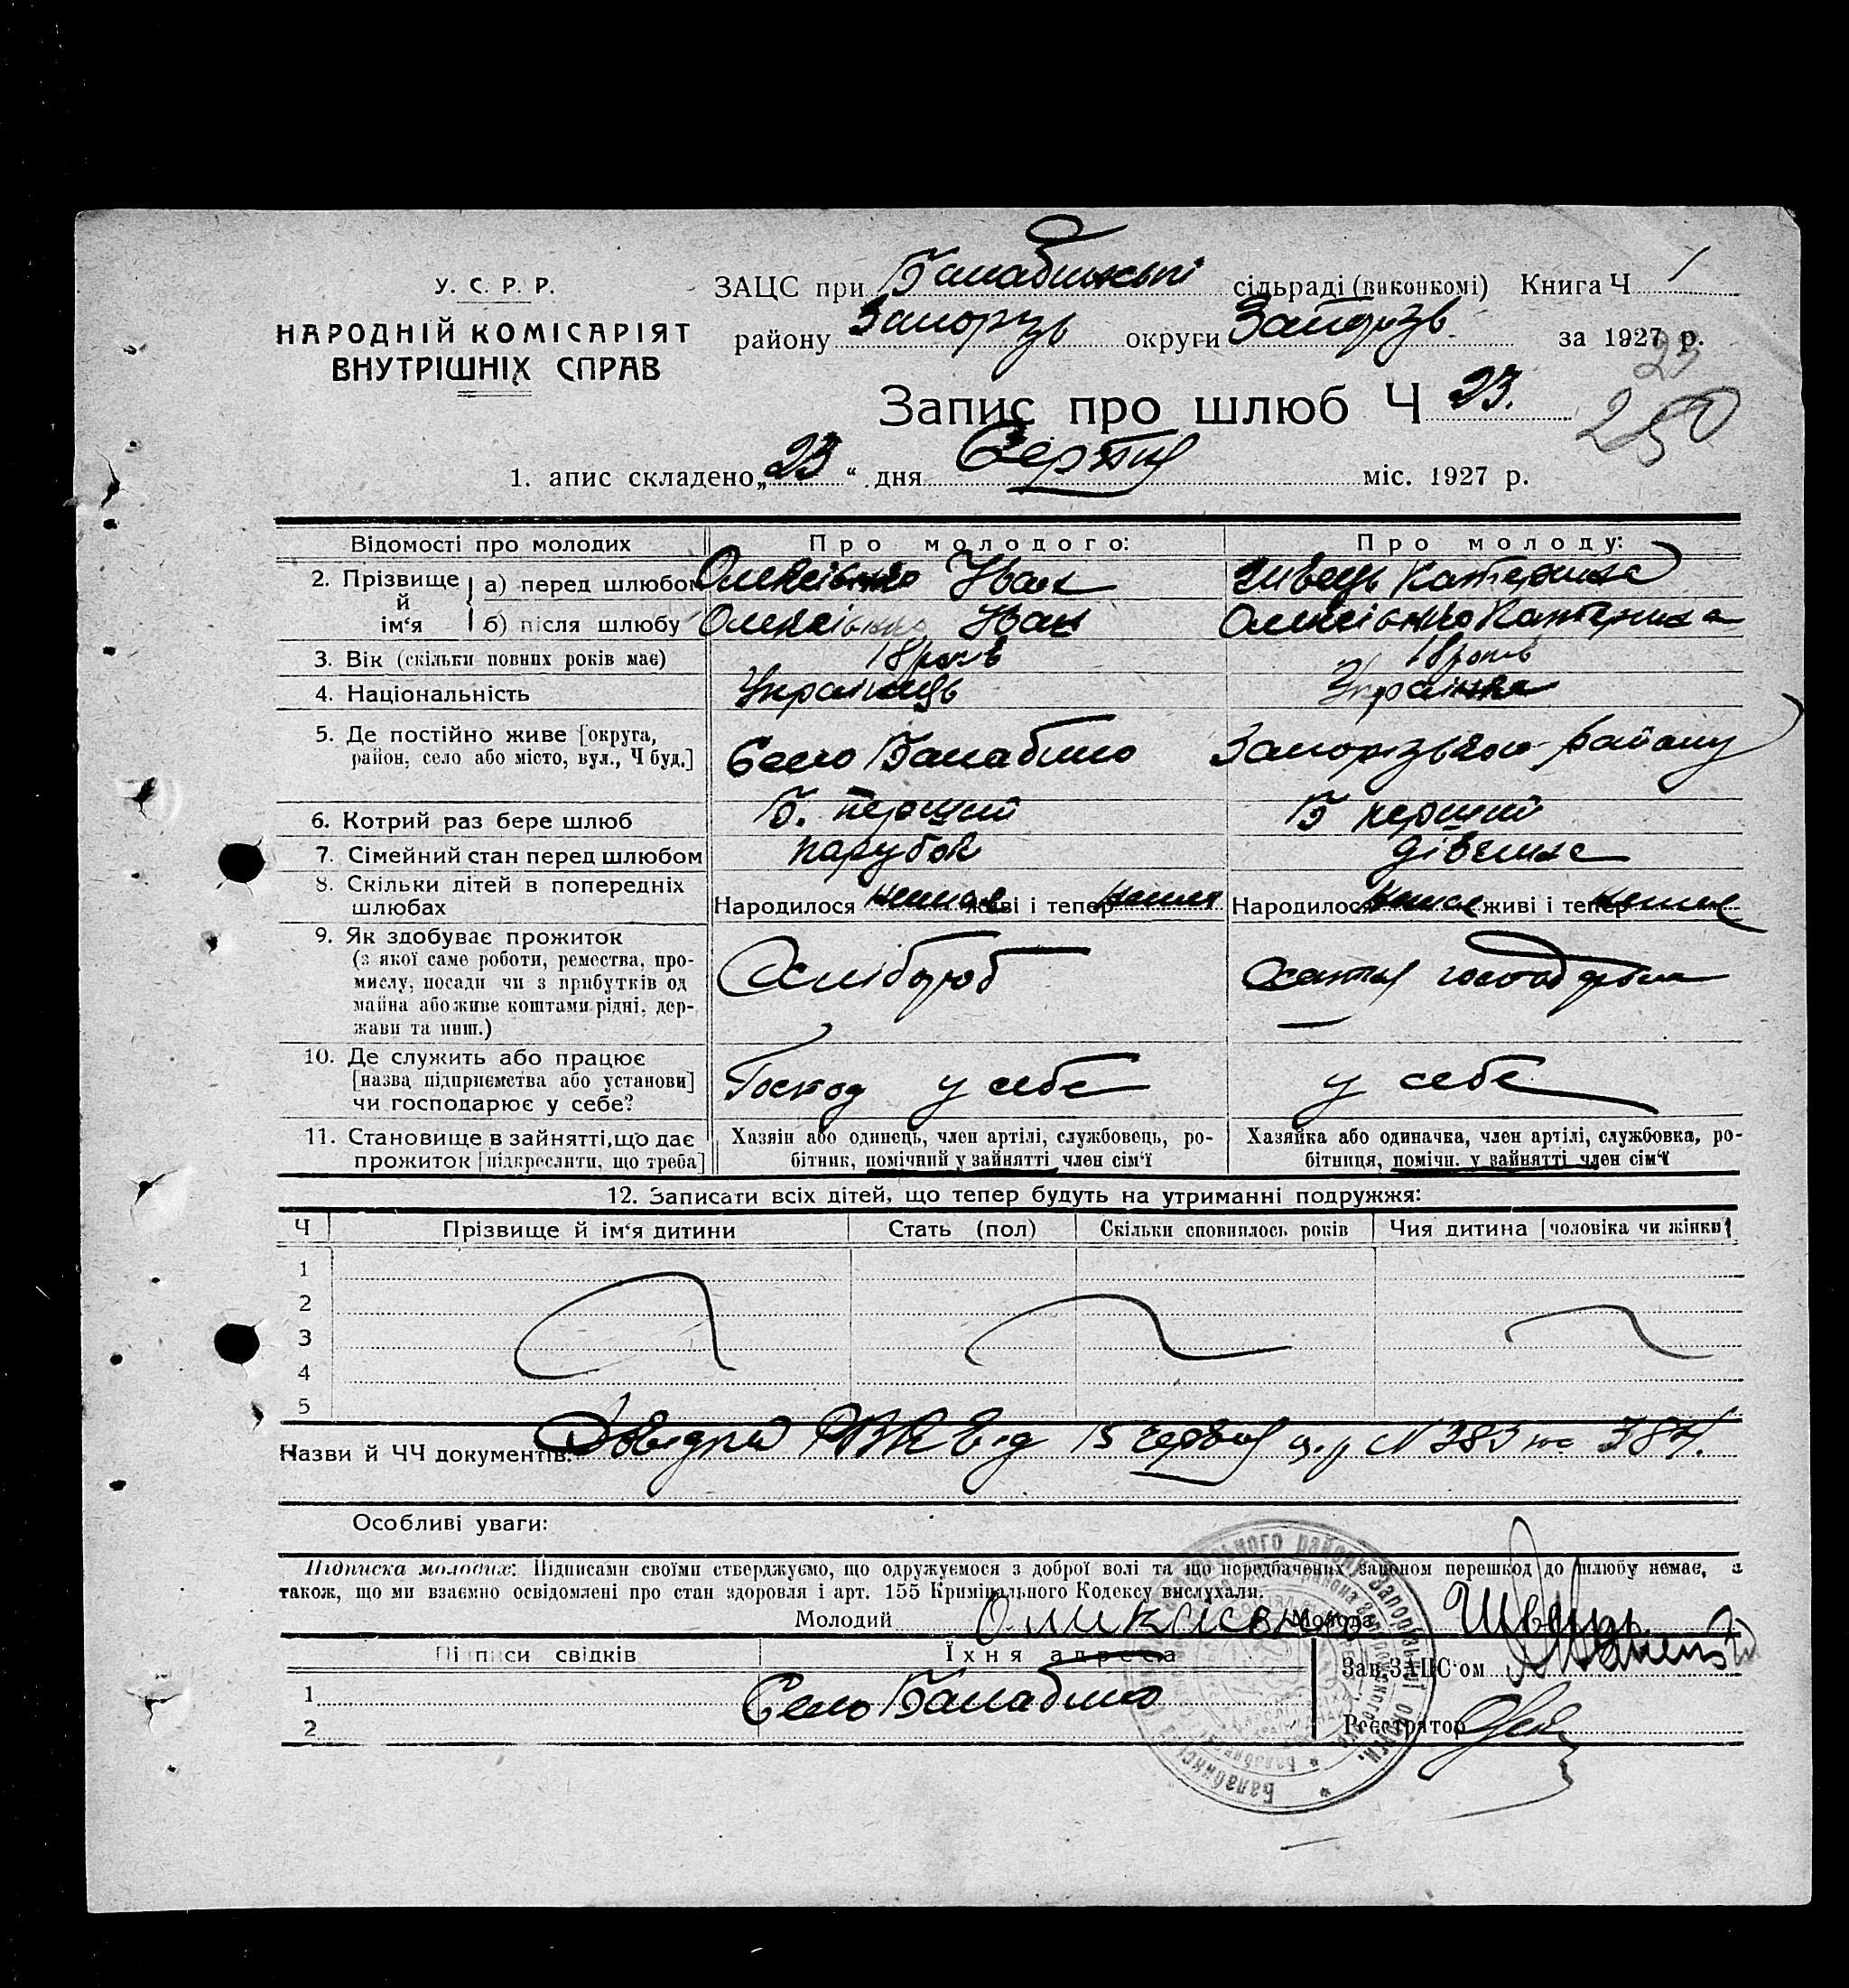 У. С. Р. Р.
НАРОДНІЙ КОМІСАРІЯТ
ВНУТРІШНІХ СПРАВ
ЗАЦС при Балабинські сільраді (виконкомі) Книга Ч 1
району Запорізьк округи Запорізьк за 1927 р.
23
Запис про шлюб Ч 23.
250
1. апис складено „23“ дня Серпня міс. 1927 р.
Відомості про молодих
Про молодого:
Про молоду:
2. Прізвище й ім‘я
а) перед шлюбом Іван Швець Катерина
б) після шлюбу Іван Катерина
3. Вік (скільки повних років має) 18 років 18 років
4. Національність Українець Українка
5. Де постійно живе [округа, район, село або місто, вул., Ч буд.] Село Балабино Запорізького району
6. Котрий раз бере шлюб Б. перший Б перший
7. Сімейний стан перед шлюбом парубок дівчина
8. Скільки дітей в попередніх шлюбах
Народилося немає живі і тепер немає Народилося немає живі і тепер немає
9. Як здобуває прожиток
(з якої саме роботи, ремества, про-
мислу, посади чи з прибутків од
майна або живе коштами рідні, дер-
жави та инш.)
Хлібороб
Хатня господарка
10. Де служить або працює
[назва підприємства або установи]
чи господарює у себе?
Господ у себе
у себе
11. Становище в зайнятті, що дає
прожиток [підкреслити, що треба]
Хазяїн або одинець, член артілі, службовець, ро-
бітник, помічний у зайнятті член сім‘ї
Хазяйка або одиначка, член артілі, службовка, ро-
бітниця, помічн. у зайнятті член сім‘ї
12. Записати всіх дітей, що тепер будуть на утриманні подружжя:
Ч Прізвище й ім‘я дитини Стать (пол) Скільки сповнилось років Чия дитина [чоловіка чи жінки]
1
2
3
4
5
Назви й ЧЧ документів: Довідки РВК від 15 червня ц.р N 383 та 384.
Особливі уваги:
Підписка молодих: Підписами своїми стверджуємо, що одружуємося з доброї волі та що передбачених законом перешкод до шлюбу немає, а
також, що ми взаємно освідомлені про стан здоровля і арт. 155 Кримінального Кодексу вислухали.
Молодий Молода Швець
Підписи свідків Їхня адреса
Зав. ЗАЦС‘ом
1
Село Балабино
2
Реєстратор